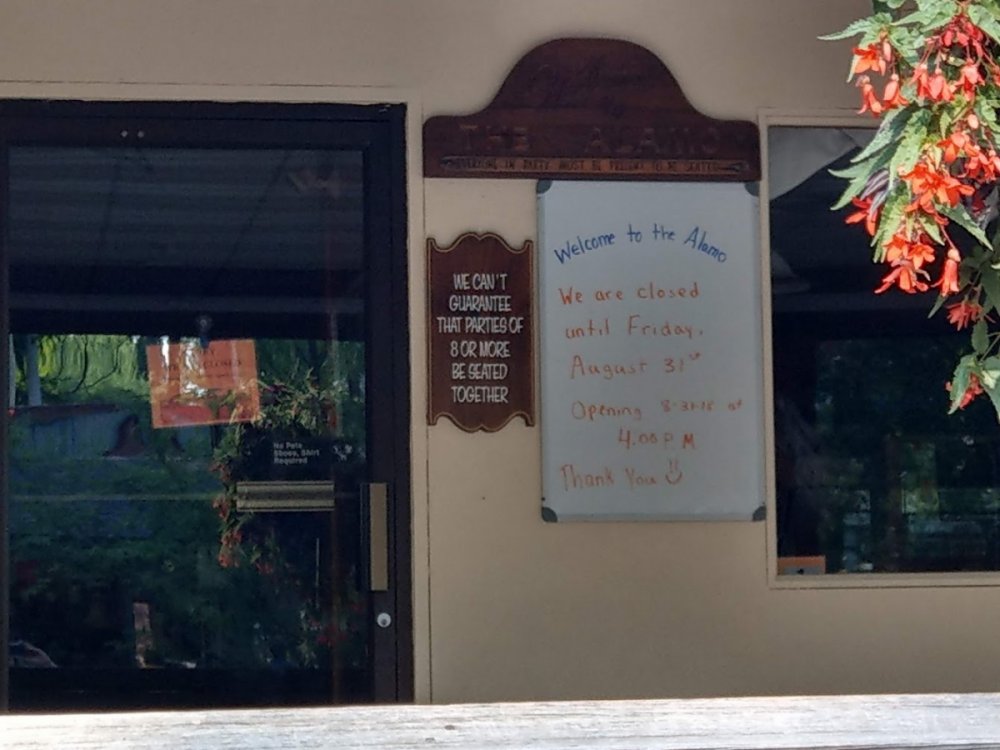 THE ALAMO
EVERYONE IN PARTY MUST BE PRESENT TO BE SEATED
Welcome to the Alamo
We are closed
until Friday,
August 31st
Opening 8-31-18 at
4:00 P.M
Thank You
WE CAN'T
GUARANTEE
THAT PARTIES OF
8 OR MORE
BE SEATED
TOGETHER
No Pets
Shoes, Shirt
Required